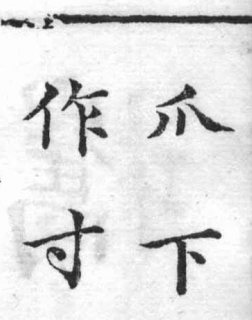 爪下
作寸